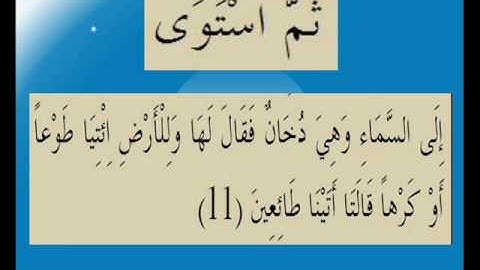 ثُمَّ اسْتَوَى
إِلَى السَّمَاءِ وَهِيَ دُخَانٌ فَقَالَ لَهَا وَلِلْأَرْضِ اِئْتِيَا طَوْعاً
أَوْ كَرْهاً قَالَتَا أَتَيْنَا طَائِعِينَ (11)